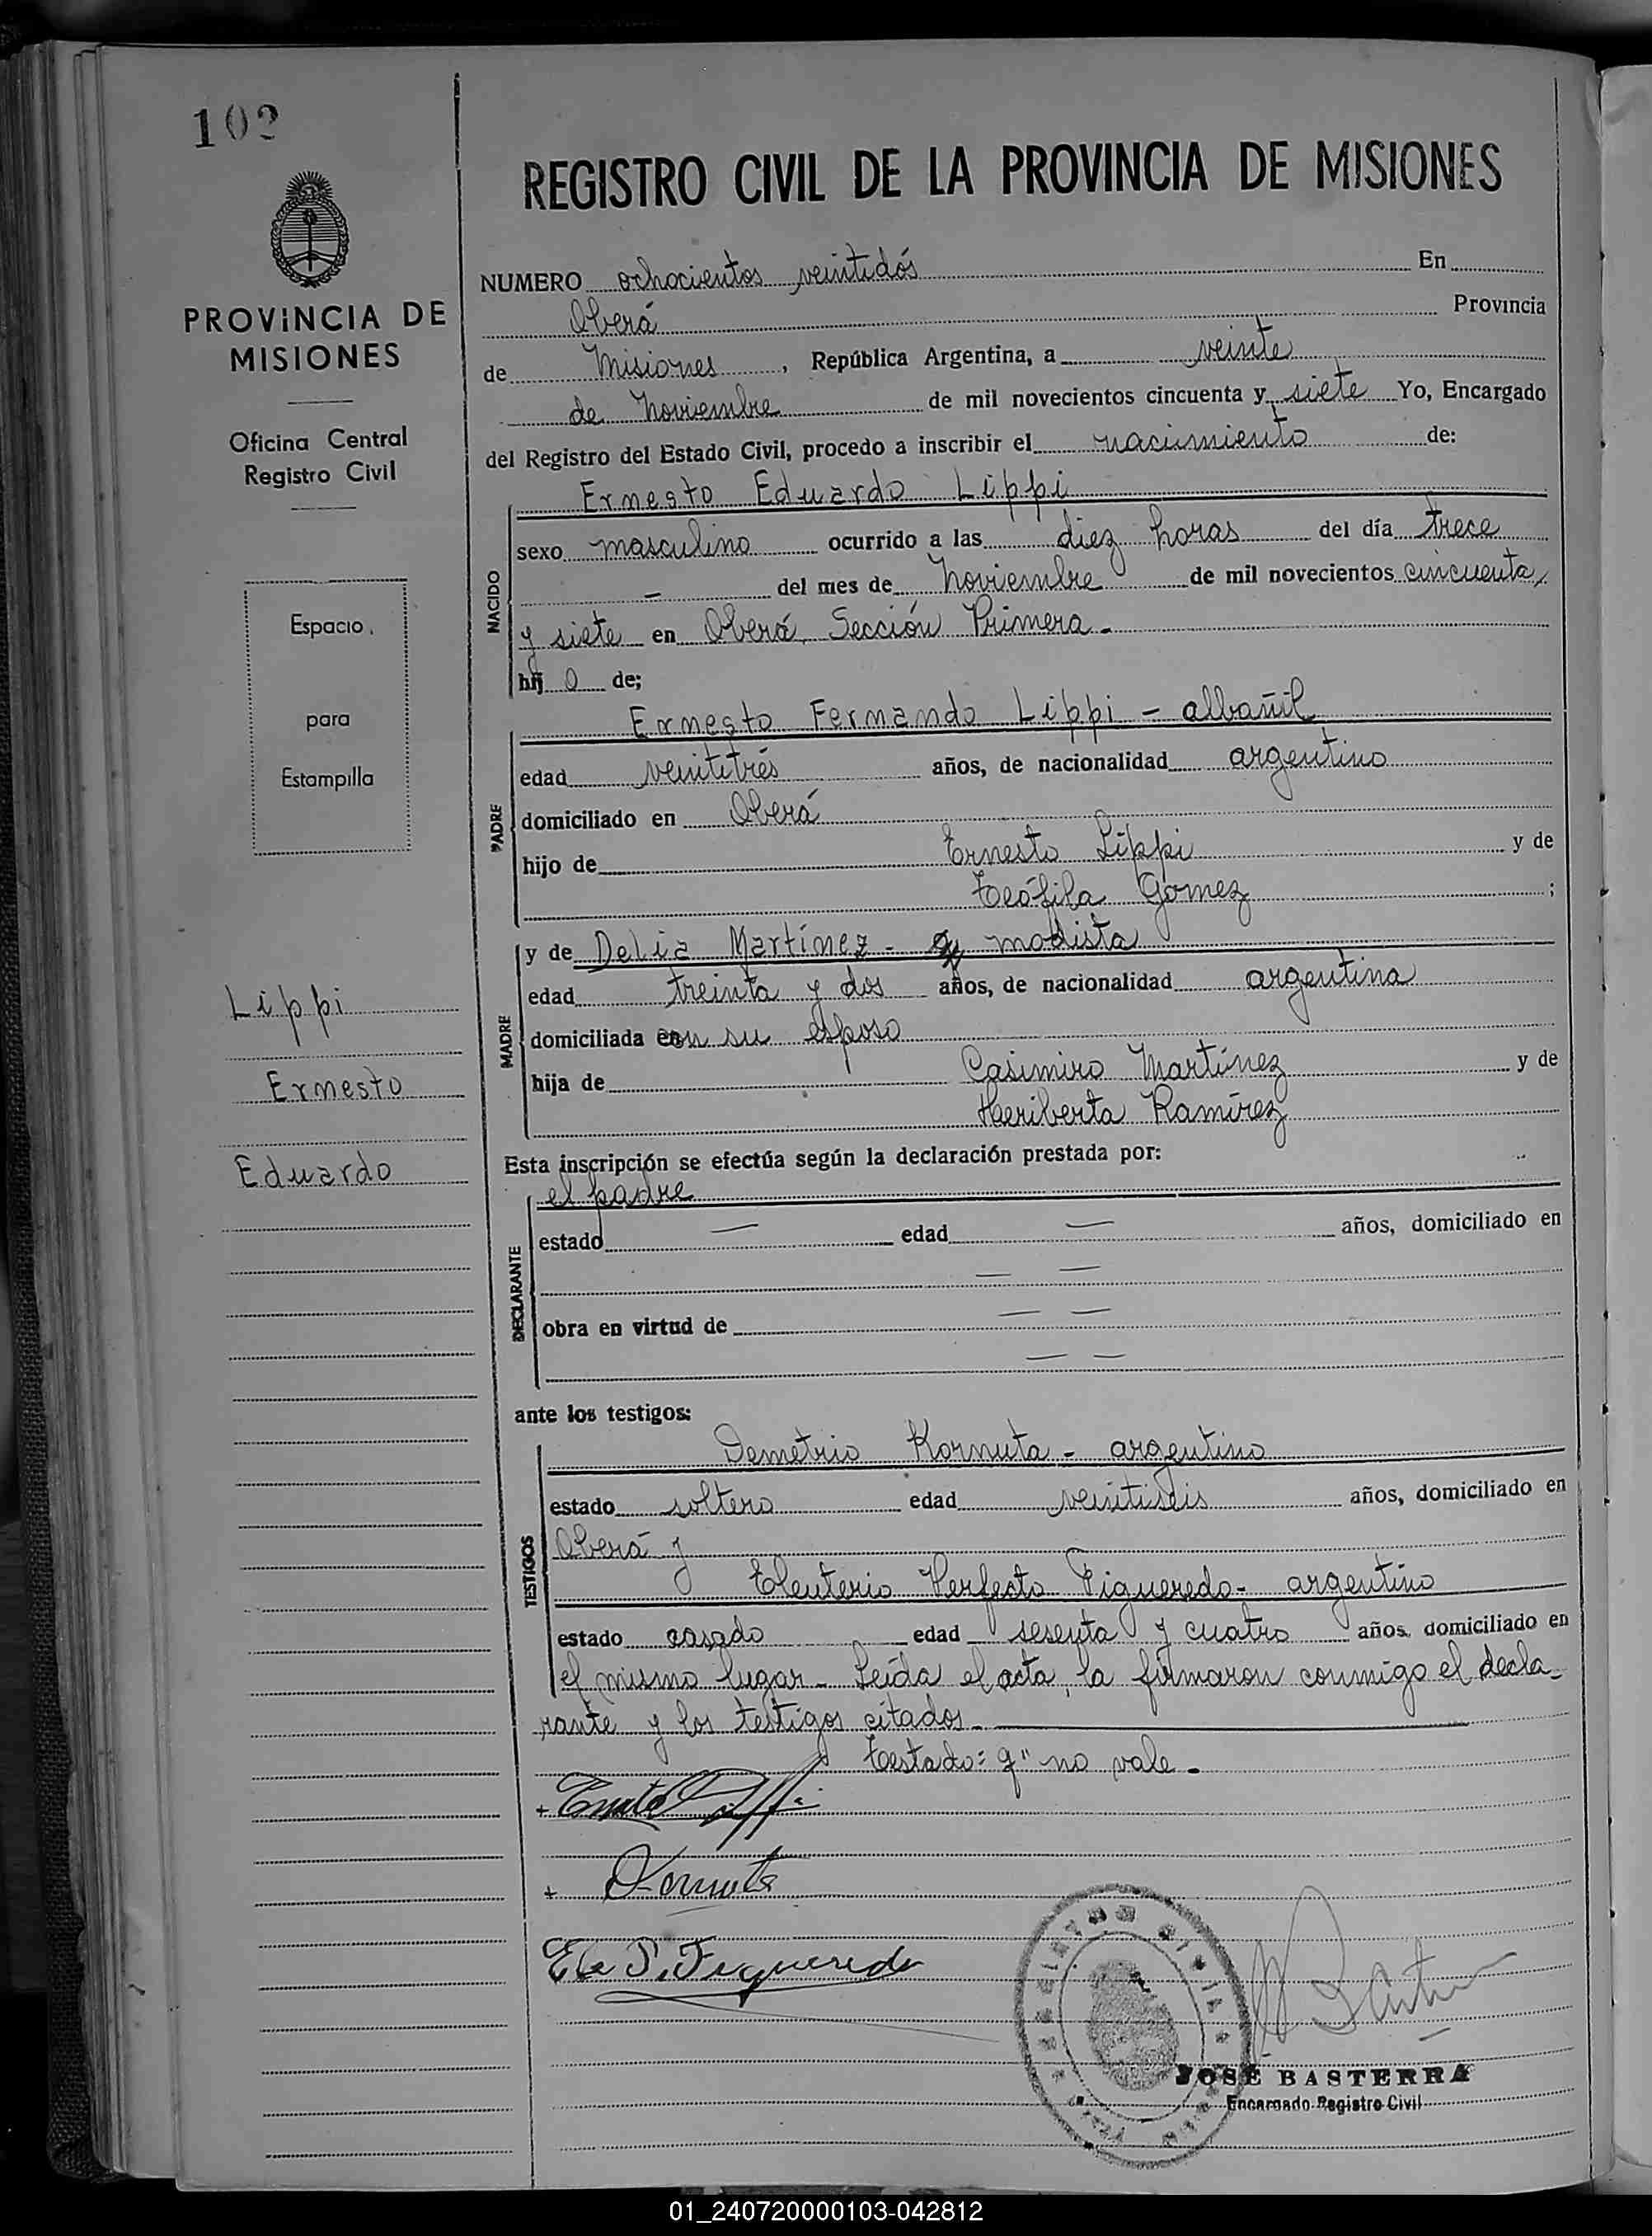 102
PROVINCIA DE
MISIONES
Oficina Central
Registro Civil
Espacio
para
Estampilla
Lippi
Ernesto
Eduardo
REGISTRO CIVIL DE LA PROVINCIA DE MISIONES
NUMERO ochocientos veintidós En
Oberá Provincia
de Misiones, República Argentina, a veinte
de Noviembre de mil novecientos cincuenta y siete Yo, Encargado
del Registro del Estado Civil, procedo a inscribir el nacimiento de:
Ernesto Eduardo Lippi
NACIDO
sexo masculino ocurrido a las diez horas del día trece
— del mes de Noviembre de mil novecientos cincuenta
y siete en Oberá, Sección Primera.
hij o de;
PADRE
Ernesto Fernando Lippi - albañil
edad veintitrés años, de nacionalidad argentino
domiciliado en Oberá
hijo de Ernesto Lippi y de
Teófila Gómez ;
MADRE
y de Delia Martínez - q modista
edad treinta y dos años, de nacionalidad argentina
domiciliada con su esposo
hija de Casimiro Martínez y de
Heriberta Ramírez
Esta inscripción se efectúa según la declaración prestada por:
DECLARANTE
el padre
estado — edad — años, domiciliado en
— —
obra en virtud de — —
— —
ante los testigos:
TESTIGOS
Demetrio Kornuta - argentino
estado soltero edad veintiséis años, domiciliado en
Oberá y
Eleuterio Perfecto Figueredo - argentino
estado casado edad sesenta y cuatro años, domiciliado en
el mismo lugar - Leída el acta, la firmaron conmigo el decla-
rante y los testigos citados -
Testado: q" no vale -
Ernesto Lippi
Kornuta
Ele P. Figueredo
JOSÉ BASTERRA
Encargado Registro Civil
01_240720000103-042812